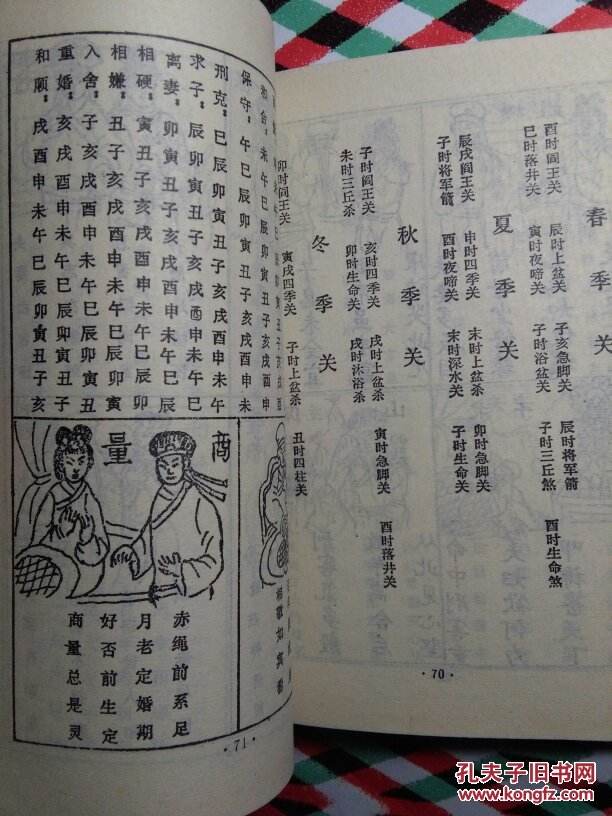 春季关
酉时阎王关 辰时上盆关 子亥急脚关 辰时将军箭
巳时落井关 寅时夜啼关 子时浴盆关 子时三丘煞 酉时生命煞
夏季关
辰戌阎王关 申时四季关 末时上盆关 卯时急脚关
子时将军箭 酉时夜啼关 末时深水关 子时生命关
秋季关
子时阎王关 亥时四季关 戌时上盆关 寅时急脚关 酉时落井关
未时三丘杀 卯时生命关 戌时沐浴杀
冬季关
卯时阎王关 寅戌四季关 子时上盆杀 丑时四柱关
·70·
和合：未午巳辰卯寅丑子亥戌酉申
保守：午巳辰卯寅丑子亥戌酉申未
刑克：巳辰卯寅丑子亥戌酉申未午
求子：辰卯寅丑子亥戌酉申未午巳
离妻：卯寅丑子亥戌酉申未午巳辰
相硬：寅丑子亥戌酉申未午巳辰卯
相嫌：丑子亥戌酉申未午巳辰卯寅
入舍：子亥戌酉申未午巳辰卯寅丑
重婚：亥戌酉申未午巳辰卯寅丑子
和顺：戌酉申未午巳辰卯寅丑子亥
商量
赤绳前系足
月老定婚期
好否前生定
商量总是灵
·71·
孔夫子旧书网
www.kongfz.com